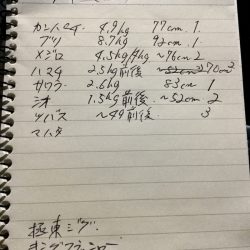 カンパチ 4.9kg 77cm 1
ブリ 8.7kg 92cm 1
メジロ 4.5kg/4kg ~76cm 2
ハマチ 2.5kg前後 70cm 2
サワラ 2.6kg 83cm 1
1.5kg前後 ~52cm 2
ツバス ~49前後 3
マハタ
極東ジグ